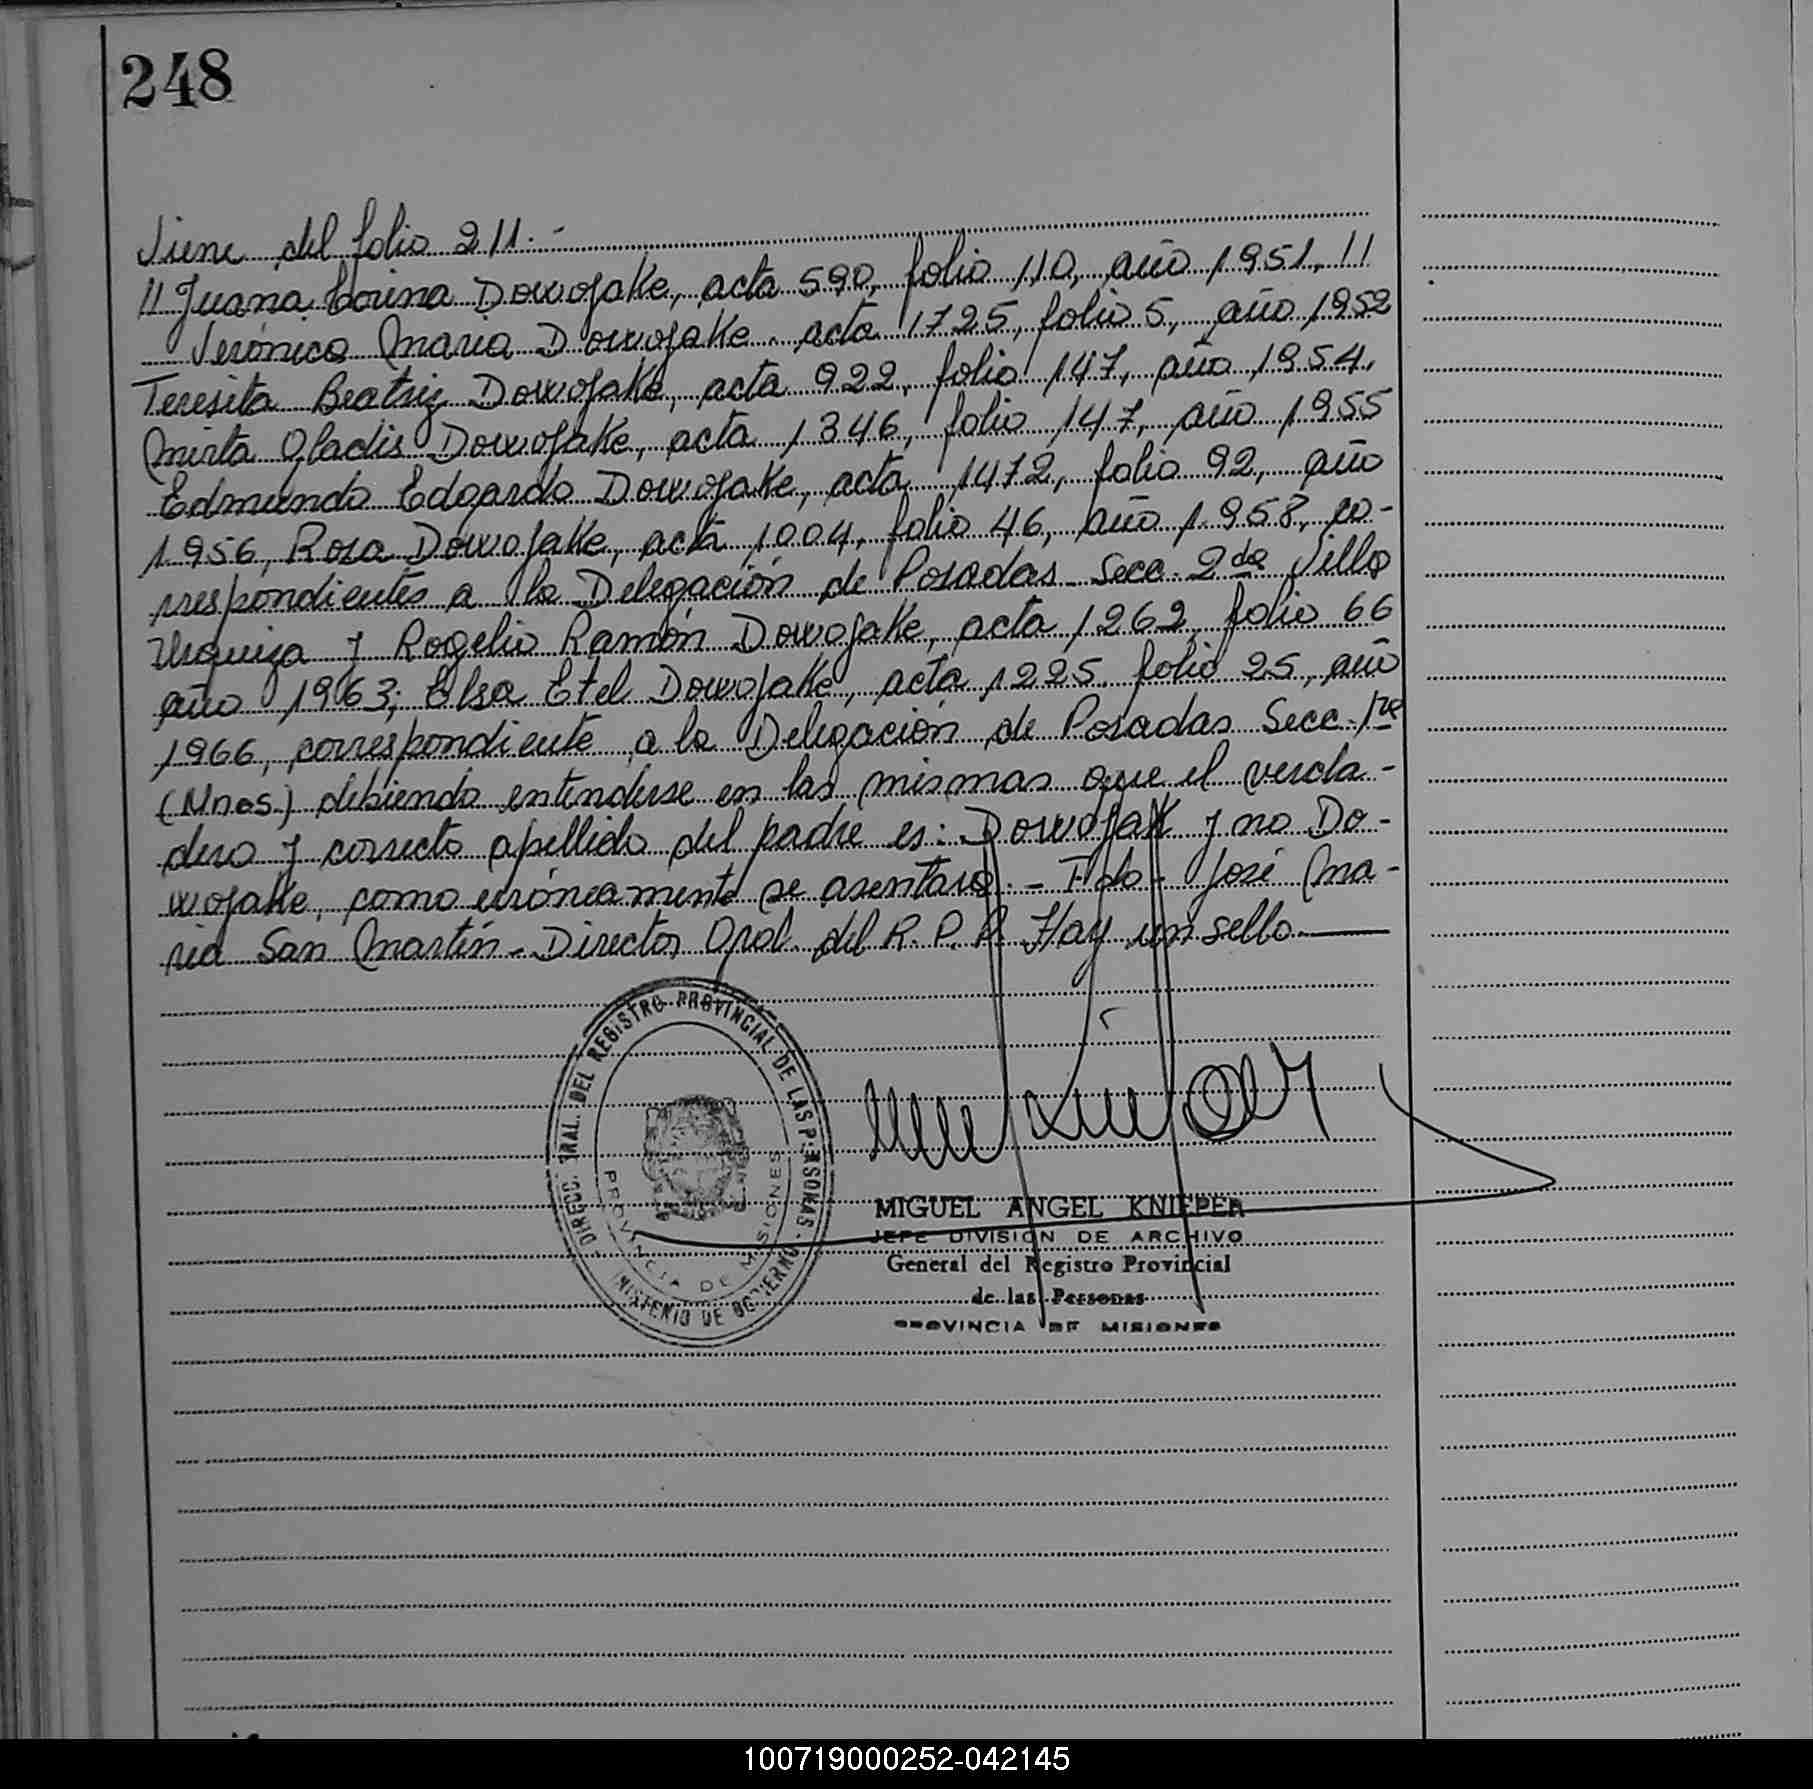 248
Viene del folio 211.-
// Juana Corina Dowojake, acta 590, folio 110, año 1951, //
Verónica Maria Dowojake. acta 1725, folio 5, año 1952
Teresita Beatriz Dowojake, acta 922, folio 147, año 1954,
Mirta Gladis Dowojake, acta 1346, folio 147, año 1955
Edmundo Edgardo Dowojake, acta 1472, folio 92, año
1956, Rosa Dowojake, acta 1004, folio 46, año 1958, co-
rrespondientes a la Delegación de Posadas Secc. 2da Villa
Urquiza y Rogelio Ramón Dowojake, acta 1262, folio 66
año 1963; Elsa Etel Dowojake, acta 1225, folio 25, año
1966, correspondiente a la Delegación de Posadas Secc. 1ra
(Mnes.) debiendo entenderse en las mismas que el verda-
dero y correcto apellido del padre es: Dowojak y no Do-
wojake, como erróneamente se asentara.- Fdo- José Ma-
ria San Martín - Director Gral. del R. P. P. Hay un sello.
DIRECC. GRAL. DEL REGISTRO PROVINCIAL DE LAS PERSONAS -
MINISTERIO DE GOBIERNO
PROVINCIA DE MISIONES
MIGUEL ANGEL KNIEPER
JEFE DIVISION DE ARCHIVO
General del Registro Provincial
de las Personas
PROVINCIA DE MISIONES
100719000252-042145